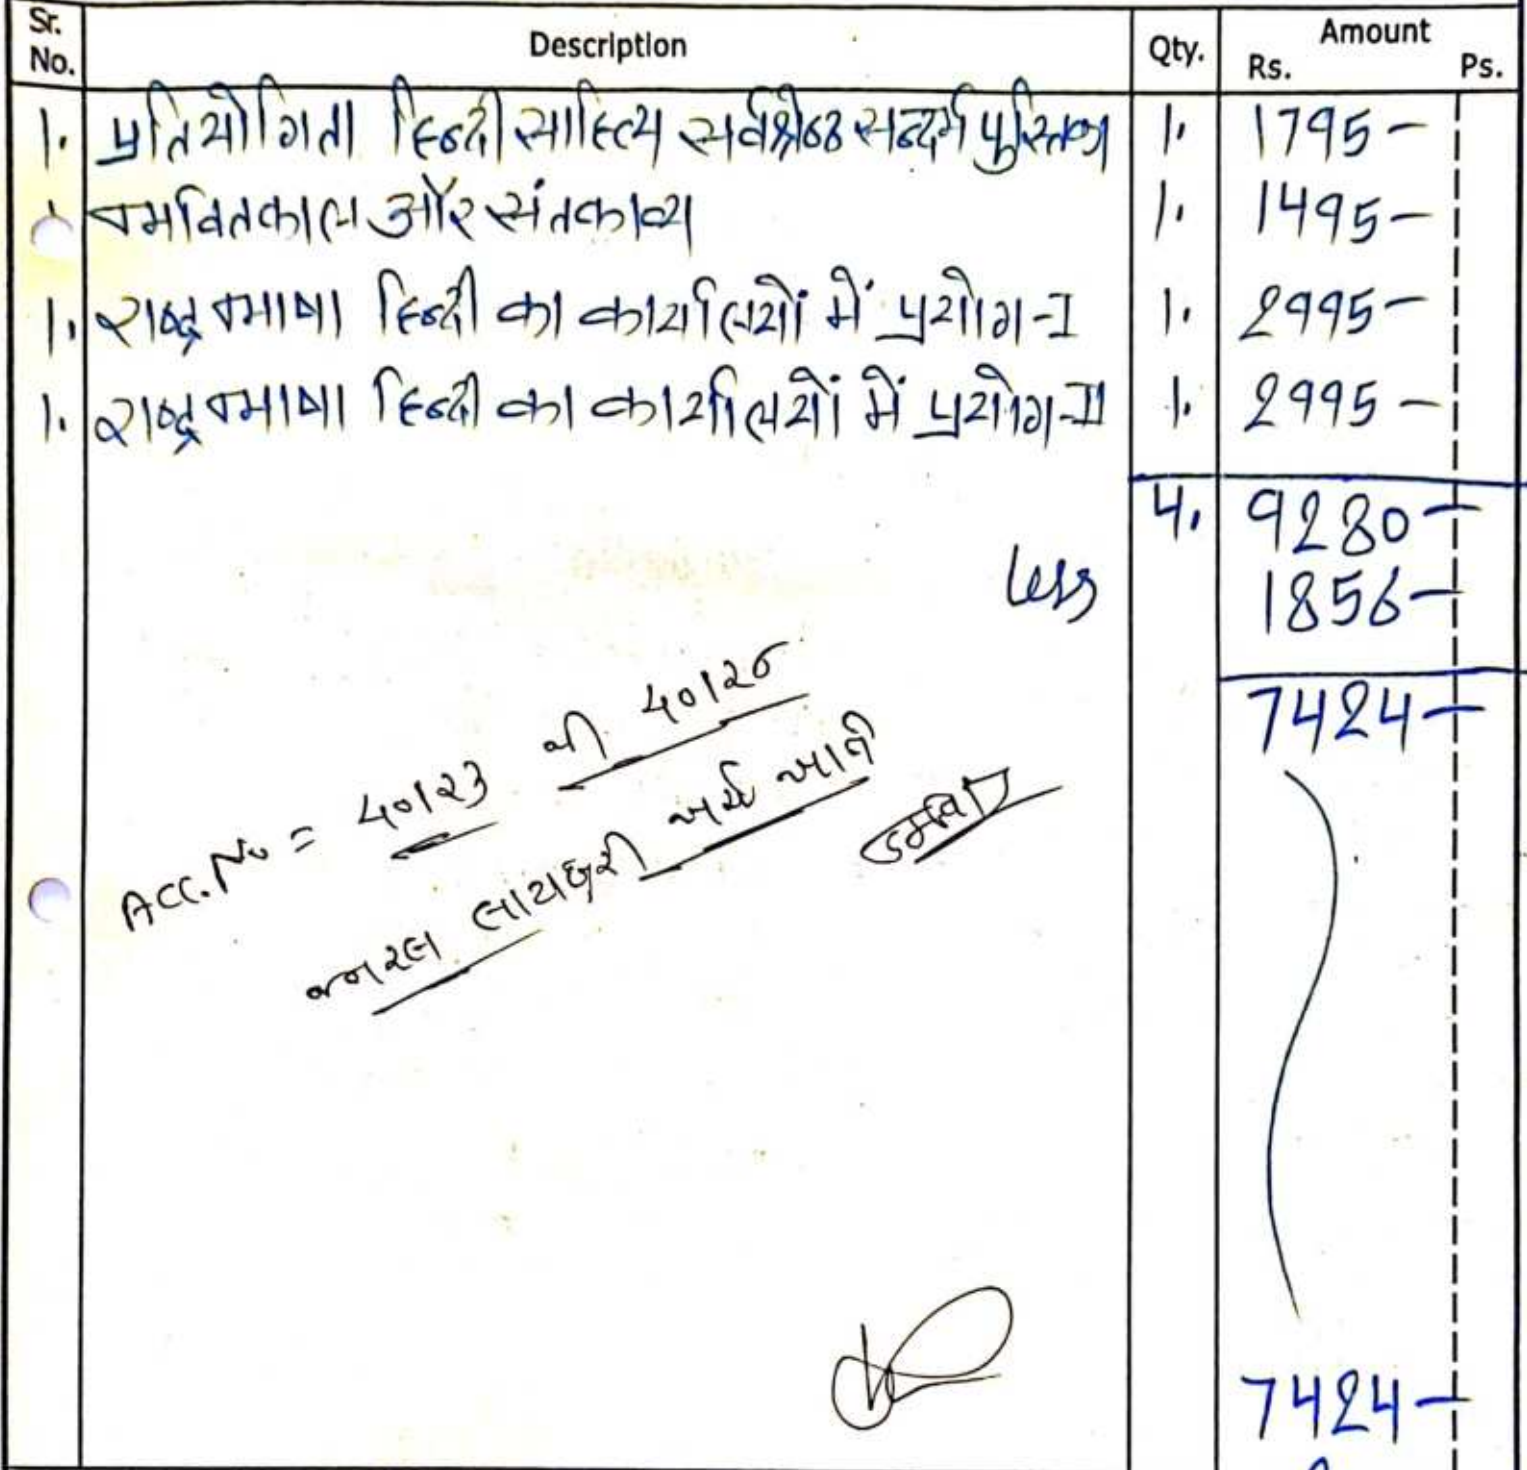 Sr. No. Description Qty. Amount Rs. Ps.
1. प्रतियोगिता हिन्दी साहित्य सर्वश्रेष्ठ सन्दर्भ पुस्तिका 1. 1795-
1 भक्तिकाल और संतकाव्य 1. 1495-
1. राष्ट्रभाषा हिन्दी का कार्यालयों में प्रयोग-I 1. 2995-
1. राष्ट्रभाषा हिन्दी का कार्यालयों में प्रयोग-II 1. 2995-
4. 9280-
Less 1856-
7424-
Acc. No = 40123 થી 40126
જનરલ લાયબ્રેરી ખર્ચ ખાતે
7424-